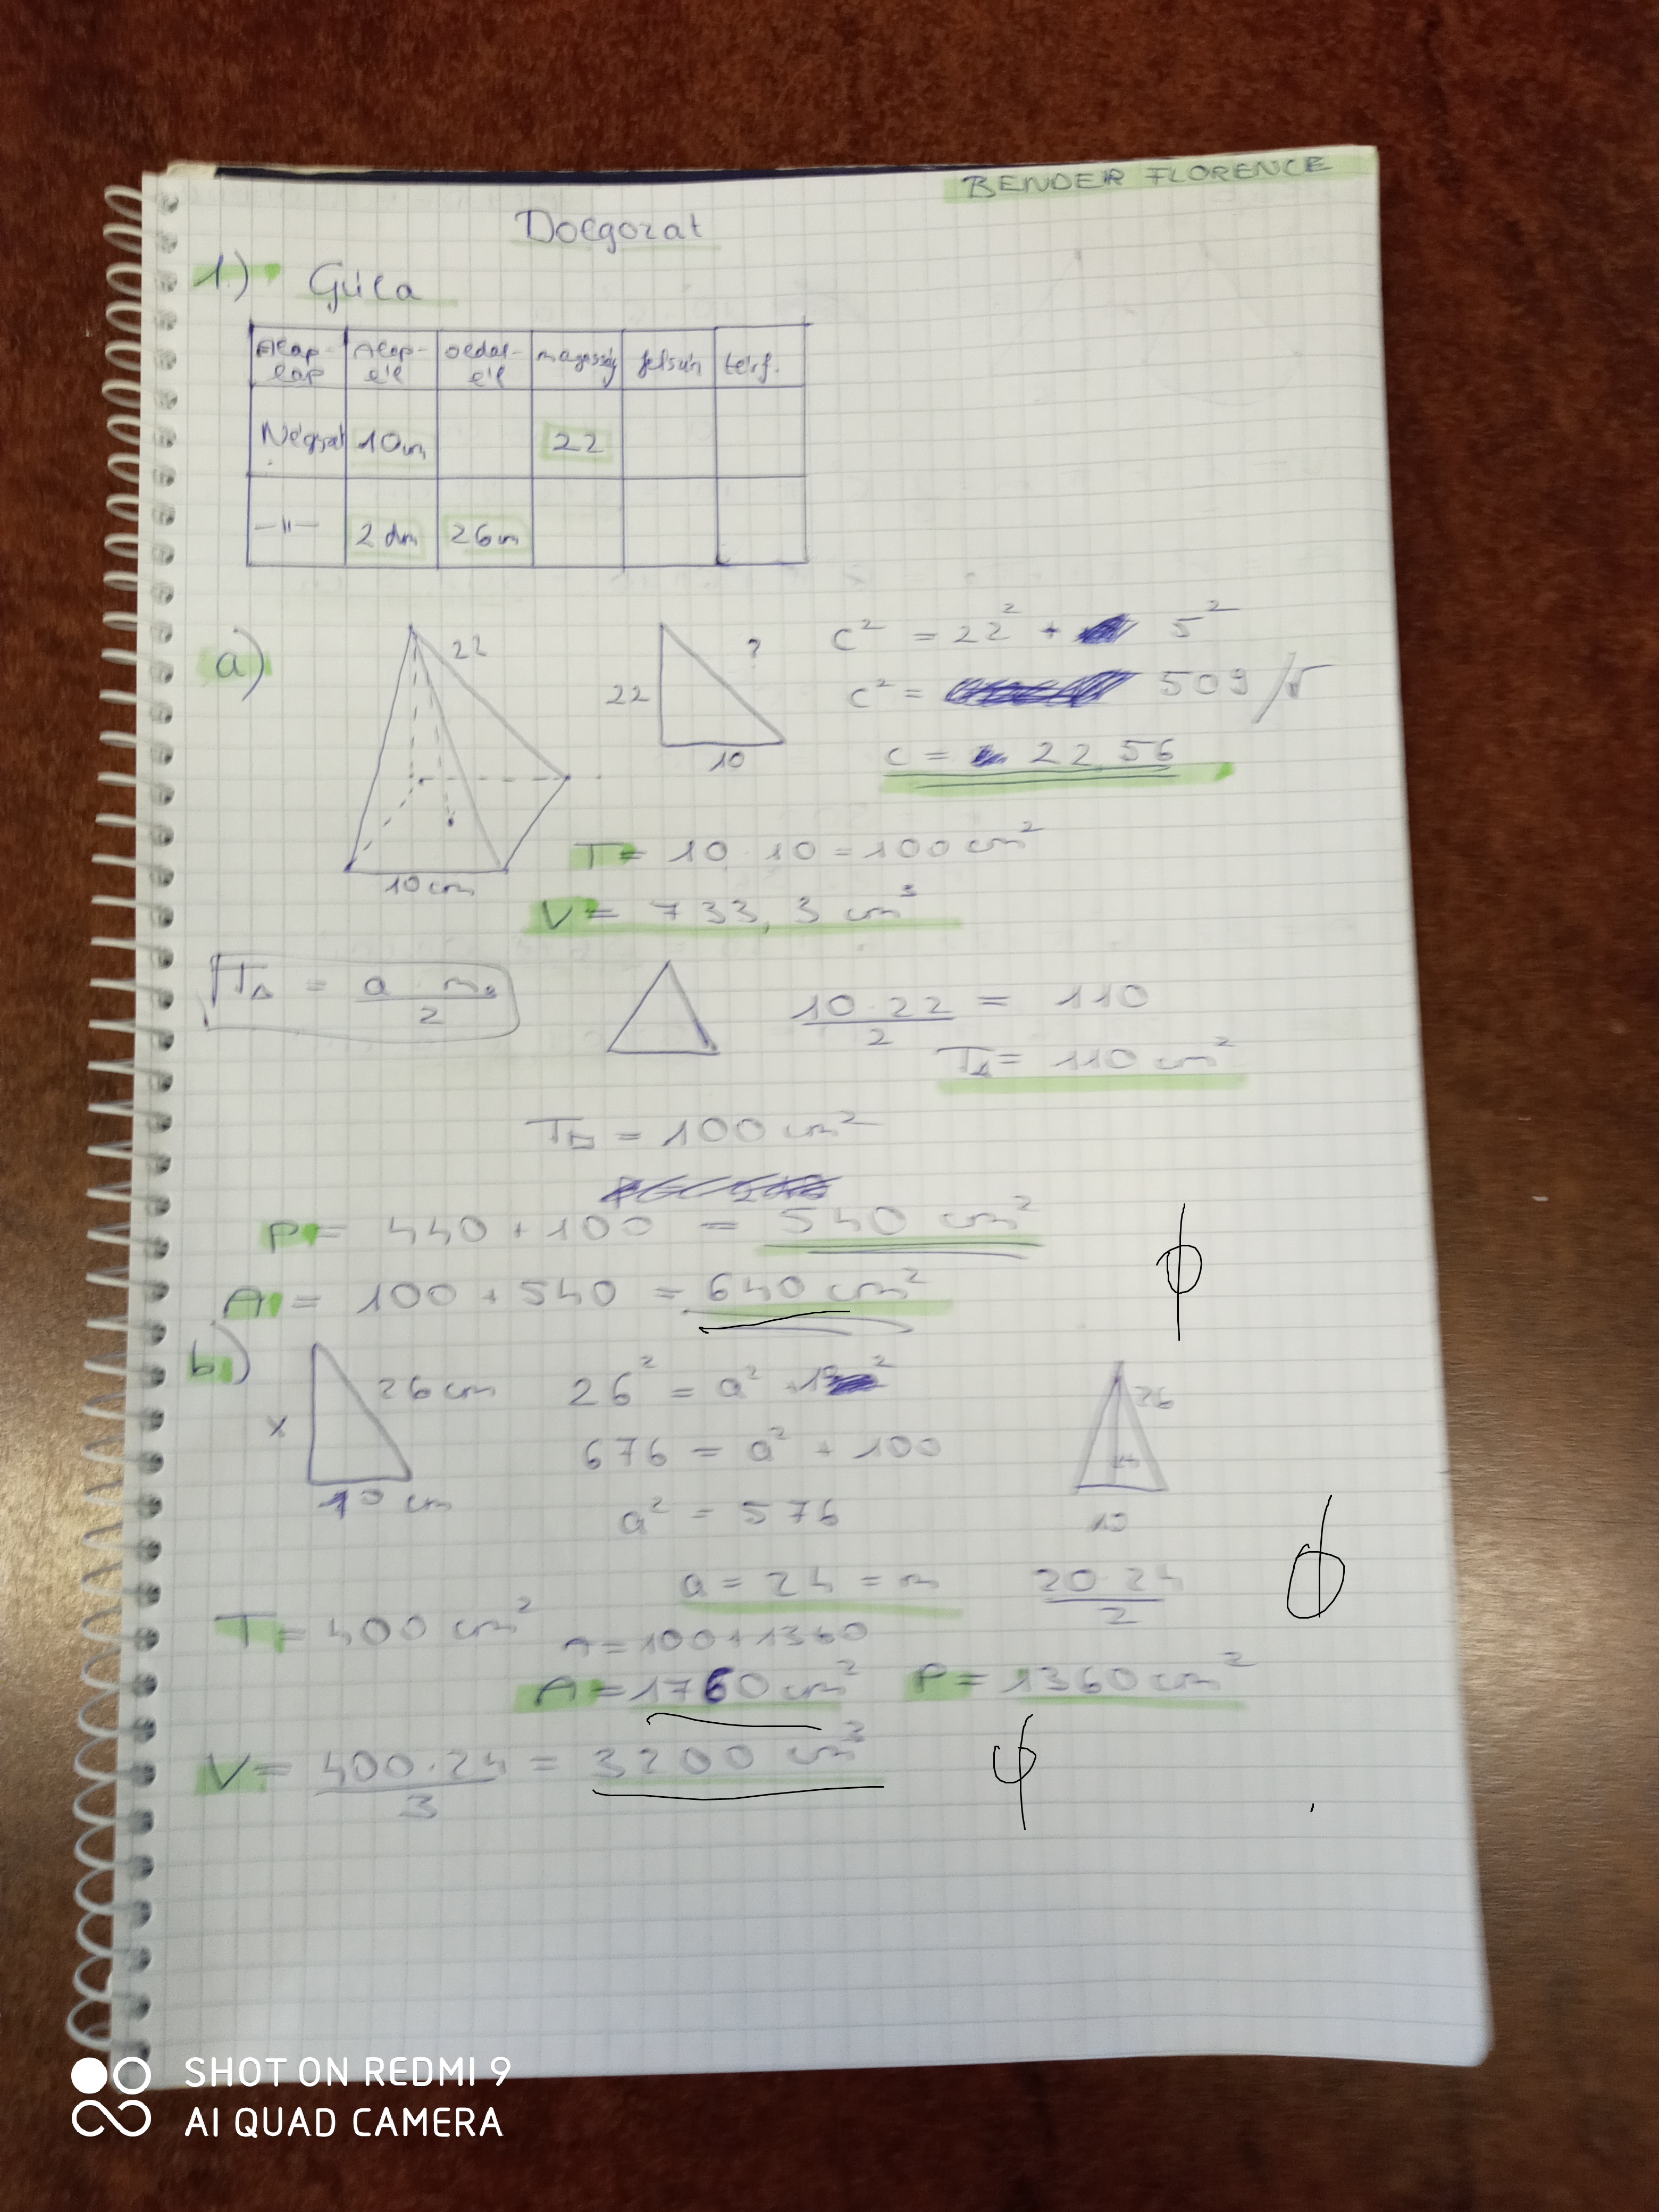 BENDER FLORENCE
Dolgozat
1.) Gúla
Alap-lap Alap-él oldal-él magasság felszín térf.
Négyzet 10cm 22
—||— 2 dm 26cm
a)
22
10cm
22 ? 10
c² = 22² + 5²
c² = 509 /√
c = 22,56
T = 10 · 10 = 100 cm²
V = 733,3 cm³
T△ = a · mₐ / 2
10 · 22 / 2 = 110
T△ = 110 cm²
T□ = 100 cm²
P = 440 + 100 = 540 cm²
A = 100 + 540 = 640 cm²
b.)
x 26cm 10 cm
26² = a² + 10²
676 = a² + 100
a² = 576
26
10
a = 24 = m
20 · 24 / 2
T = 400 cm²
A = 100 + 1360
A = 1760 cm² P = 1360 cm²
V = 400 · 24 / 3 = 3200 cm³
SHOT ON REDMI 9
AI QUAD CAMERA